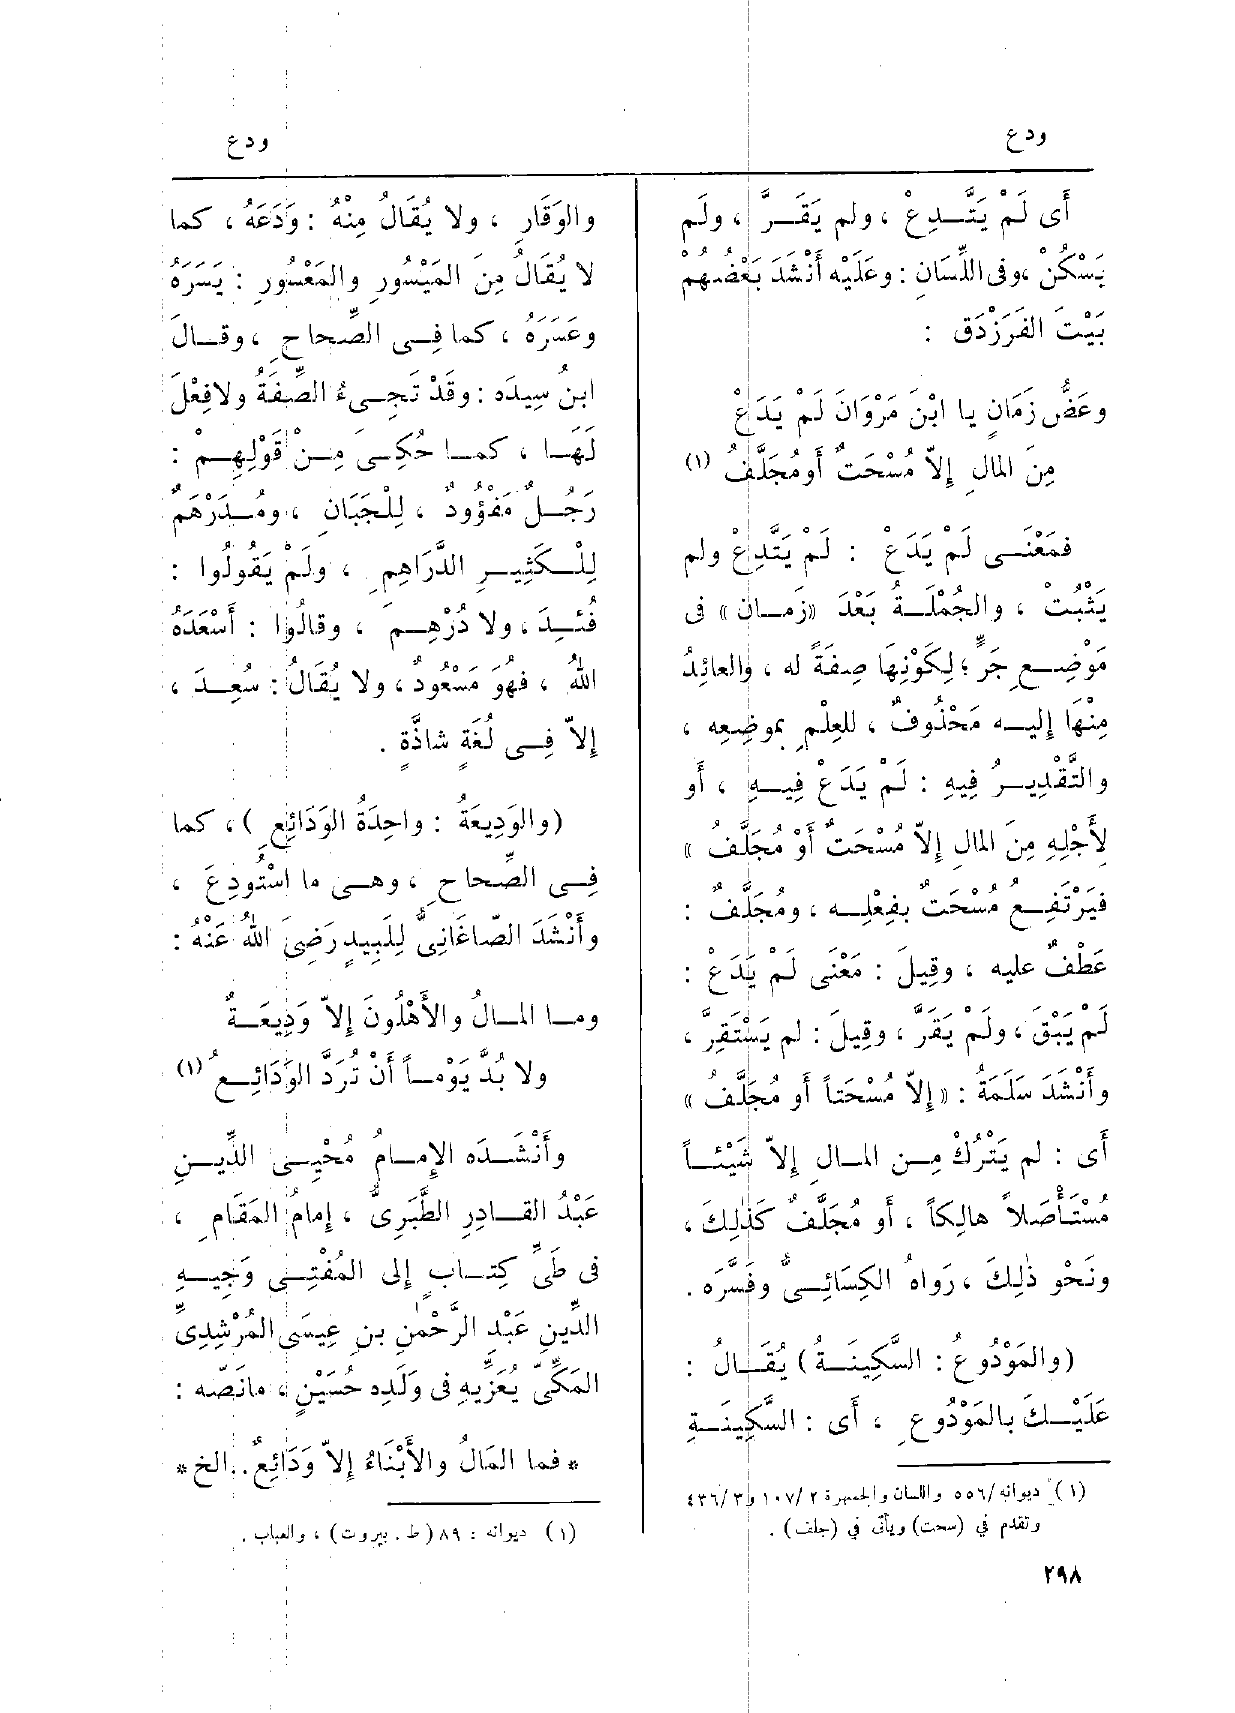 ودع
ودع
أى لَمْ يَتَّـدِعْ ، ولم يَقَـرَّ ، ولَم
يَسْكُنْ ، وفى اللِّسَانِ : وعَلَيْه أَنْشَدَ بَعْضُهُمْ
بَيْتَ الفَرَزْدَقِ :
وعَضُّ زَمَانٍ يا ابْنَ مَرْوَانَ لَمْ يَدَعْ
مِنَ المَالِ إِلاّ مُسْحَتٌ أَو مُجَلَّفُ (١)
فمَعْنَـى لَمْ يَدَعْ : لَمْ يَتَّدِعْ ولم
يَثْبُتْ ، والجُمْلَـةُ بَعْدَ « زَمـان » فى
مَوْضِـعِ جَرٍّ ؛ لِكَوْنِهَا صِفَةً له ، والعائِدُ
مِنْهَا إِليـه مَحْذُوفٌ ، للعِلْمِ بموضِعِه ،
والتَّقْدِيـرُ فِيهِ : لَمْ يَدَعْ فِيـهِ ، أَو
لِأَجْلِهِ مِنَ المَالِ إِلاّ مُسْحَتٌ أَوْ مُجَلَّفُ »
فيَرْتَفِـعُ مُسْحَتٌ بفِعْلِـه ، ومُجَلَّفٌ :
عَطْفٌ عليه ، وقِيلَ : مَعْنَى لَمْ يَدَعْ :
لَمْ يَبْقَ ، ولَمْ يَقَرَّ ، وقِيلَ : لم يَسْتَقِرَّ ،
وأَنْشَدَ سَلَمَةُ : « إِلاّ مُسْحَتاً أَو مُجَلَّفُ »
أَى : لم يَتْرُكْ مِـن المـالِ إِلاّ شَيْئـاً
مُسْتَـأْصَلاً هالِكاً ، أَو مُجَلَّفٌ كَذلِكَ ،
ونَحْوِ ذلِكَ ، رَواهُ الكِسَائِـىُّ وفَسَّرَه .
(والمَوْدُوعُ : السَّكِينَـةُ) يُقَـالُ :
عَلَيْـكَ بالمَوْدُوعِ ، أَى : السَّكِينَـةِ
(١) ديوانه /٥٥٦ واللسان والجمهرة ١٠٧/٢ و٤٣٦/٣
وتقدم في (سحت) ويأتى في (جلف) .
والوَقَارِ ، ولا يُقَالُ مِنْهُ : وَدَعَهُ ، كما
لا يُقَالُ مِنَ المَيْسُورِ والمَعْسُورِ : يَسَرَهُ
وعَسَرَهُ ، كما فِـى الصِّحاحِ ، وقـالَ
ابنُ سِيدَه : وقَدْ تَجِـىءُ الصِّفَةُ ولا فِعْلَ
لَهَـا ، كمـا حُكِـىَ مِـنْ قَوْلِهِـمْ :
رَجُـلٌ مَفْؤُودٌ ، لِلْجَبَانِ ، ومُـدَرْهَمٌ
لِلْـكَثِيـرِ الدَّرَاهِمِ ، ولَمْ يَقُولُوا :
فُئِـدَ ، ولا دُرْهِـمَ ، وقالُوا : أَسْعَدَهُ
اللهُ ، فهُوَ مَسْعُودٌ ، ولا يُقَالُ : سُعِـدَ ،
إِلاّ فِـى لُغَةٍ شاذَّةٍ .
(والوَدِيعَةُ : واحِدَةُ الوَدَائِعِ) ، كما
فِـى الصِّحاحِ ، وهـى ما اسْتُودِعَ ،
وأَنْشَدَ الصّاغَانِىُّ لِلَبِيدٍ رَضِىَ اللهُ عَنْهُ :
ومـا المـالُ والأَهْلُونَ إِلاّ وَدِيعَـةٌ
ولا بُدَّ يَوْمـاً أَنْ تُرَدَّ الوَدَائِـعُ (١)
وأَنْشَـدَه الإِمـامُ مُحْيِـى الدِّيـنِ
عَبْدُ القـادِرِ الطَّبَرِىُّ ، إِمامُ المَقَامِ ،
فى طَىِّ كِتـابٍ إِلى المُفْتِـى وَجِيـهِ
الدِّينِ عَبْدِ الرَّحْمنِ بنِ عِيسَى المُرْشِدِىِّ
المَكِّىِّ يُعَزِّيهِ فى وَلَدِه حُسَيْنٍ ، مانَصّه :
* فما المَالُ والأَبْنَاءُ إِلاّ وَدَائِعٌ .. الخ *
(١) ديوانه : ٨٩ (ط . بيروت) ، والعباب .
٢٩٨